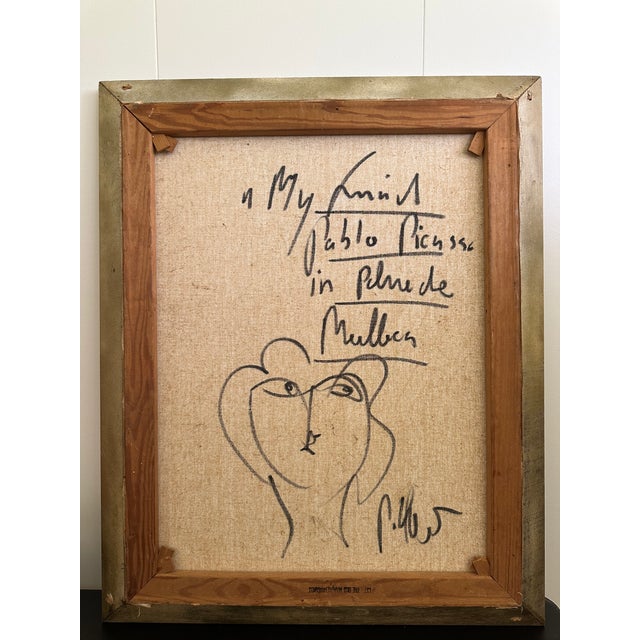 " My friend
Pablo Picasso
in Palma de
Mallorca